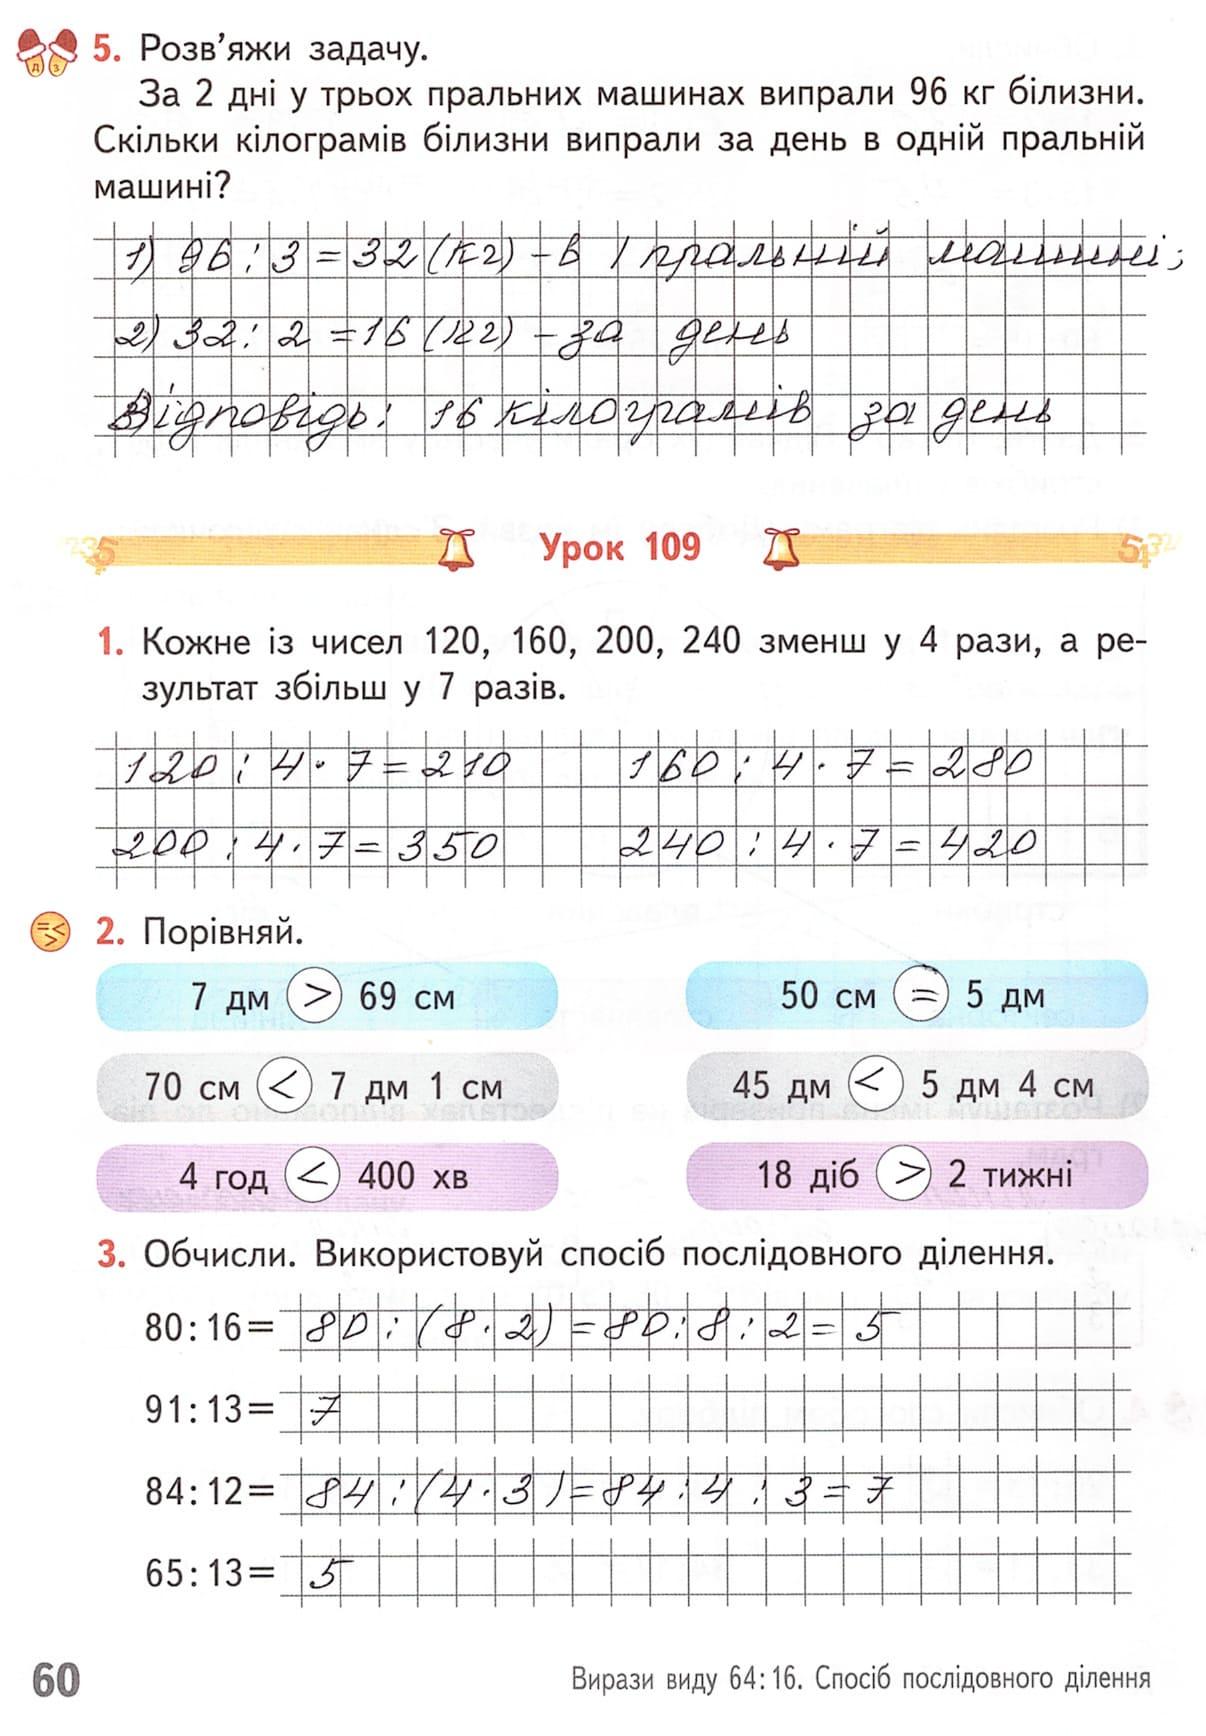 5. Розв'яжи задачу.
За 2 дні у трьох пральних машинах випрали 96 кг білизни.
Скільки кілограмів білизни випрали за день в одній пральній
машині?
1) 96 : 3 = 32 (кг) – в 1 пральній машині;
2) 32 : 2 = 16 (кг) – за день
Відповідь: 16 кілограмів за день
Урок 109
1. Кожне із чисел 120, 160, 200, 240 зменш у 4 рази, а ре-
зультат збільш у 7 разів.
120 : 4 · 7 = 210 160 : 4 · 7 = 280
200 : 4 · 7 = 350 240 : 4 · 7 = 420
2. Порівняй.
7 дм > 69 см 50 см = 5 дм
70 см < 7 дм 1 см 45 дм < 5 дм 4 см
4 год < 400 хв 18 діб > 2 тижні
3. Обчисли. Використовуй спосіб послідовного ділення.
80 : 16 = 80 : (8 · 2) = 80 : 8 : 2 = 5
91 : 13 = 7
84 : 12 = 84 : (4 · 3) = 84 : 4 : 3 = 7
65 : 13 = 5
60 Вирази виду 64 : 16. Спосіб послідовного ділення